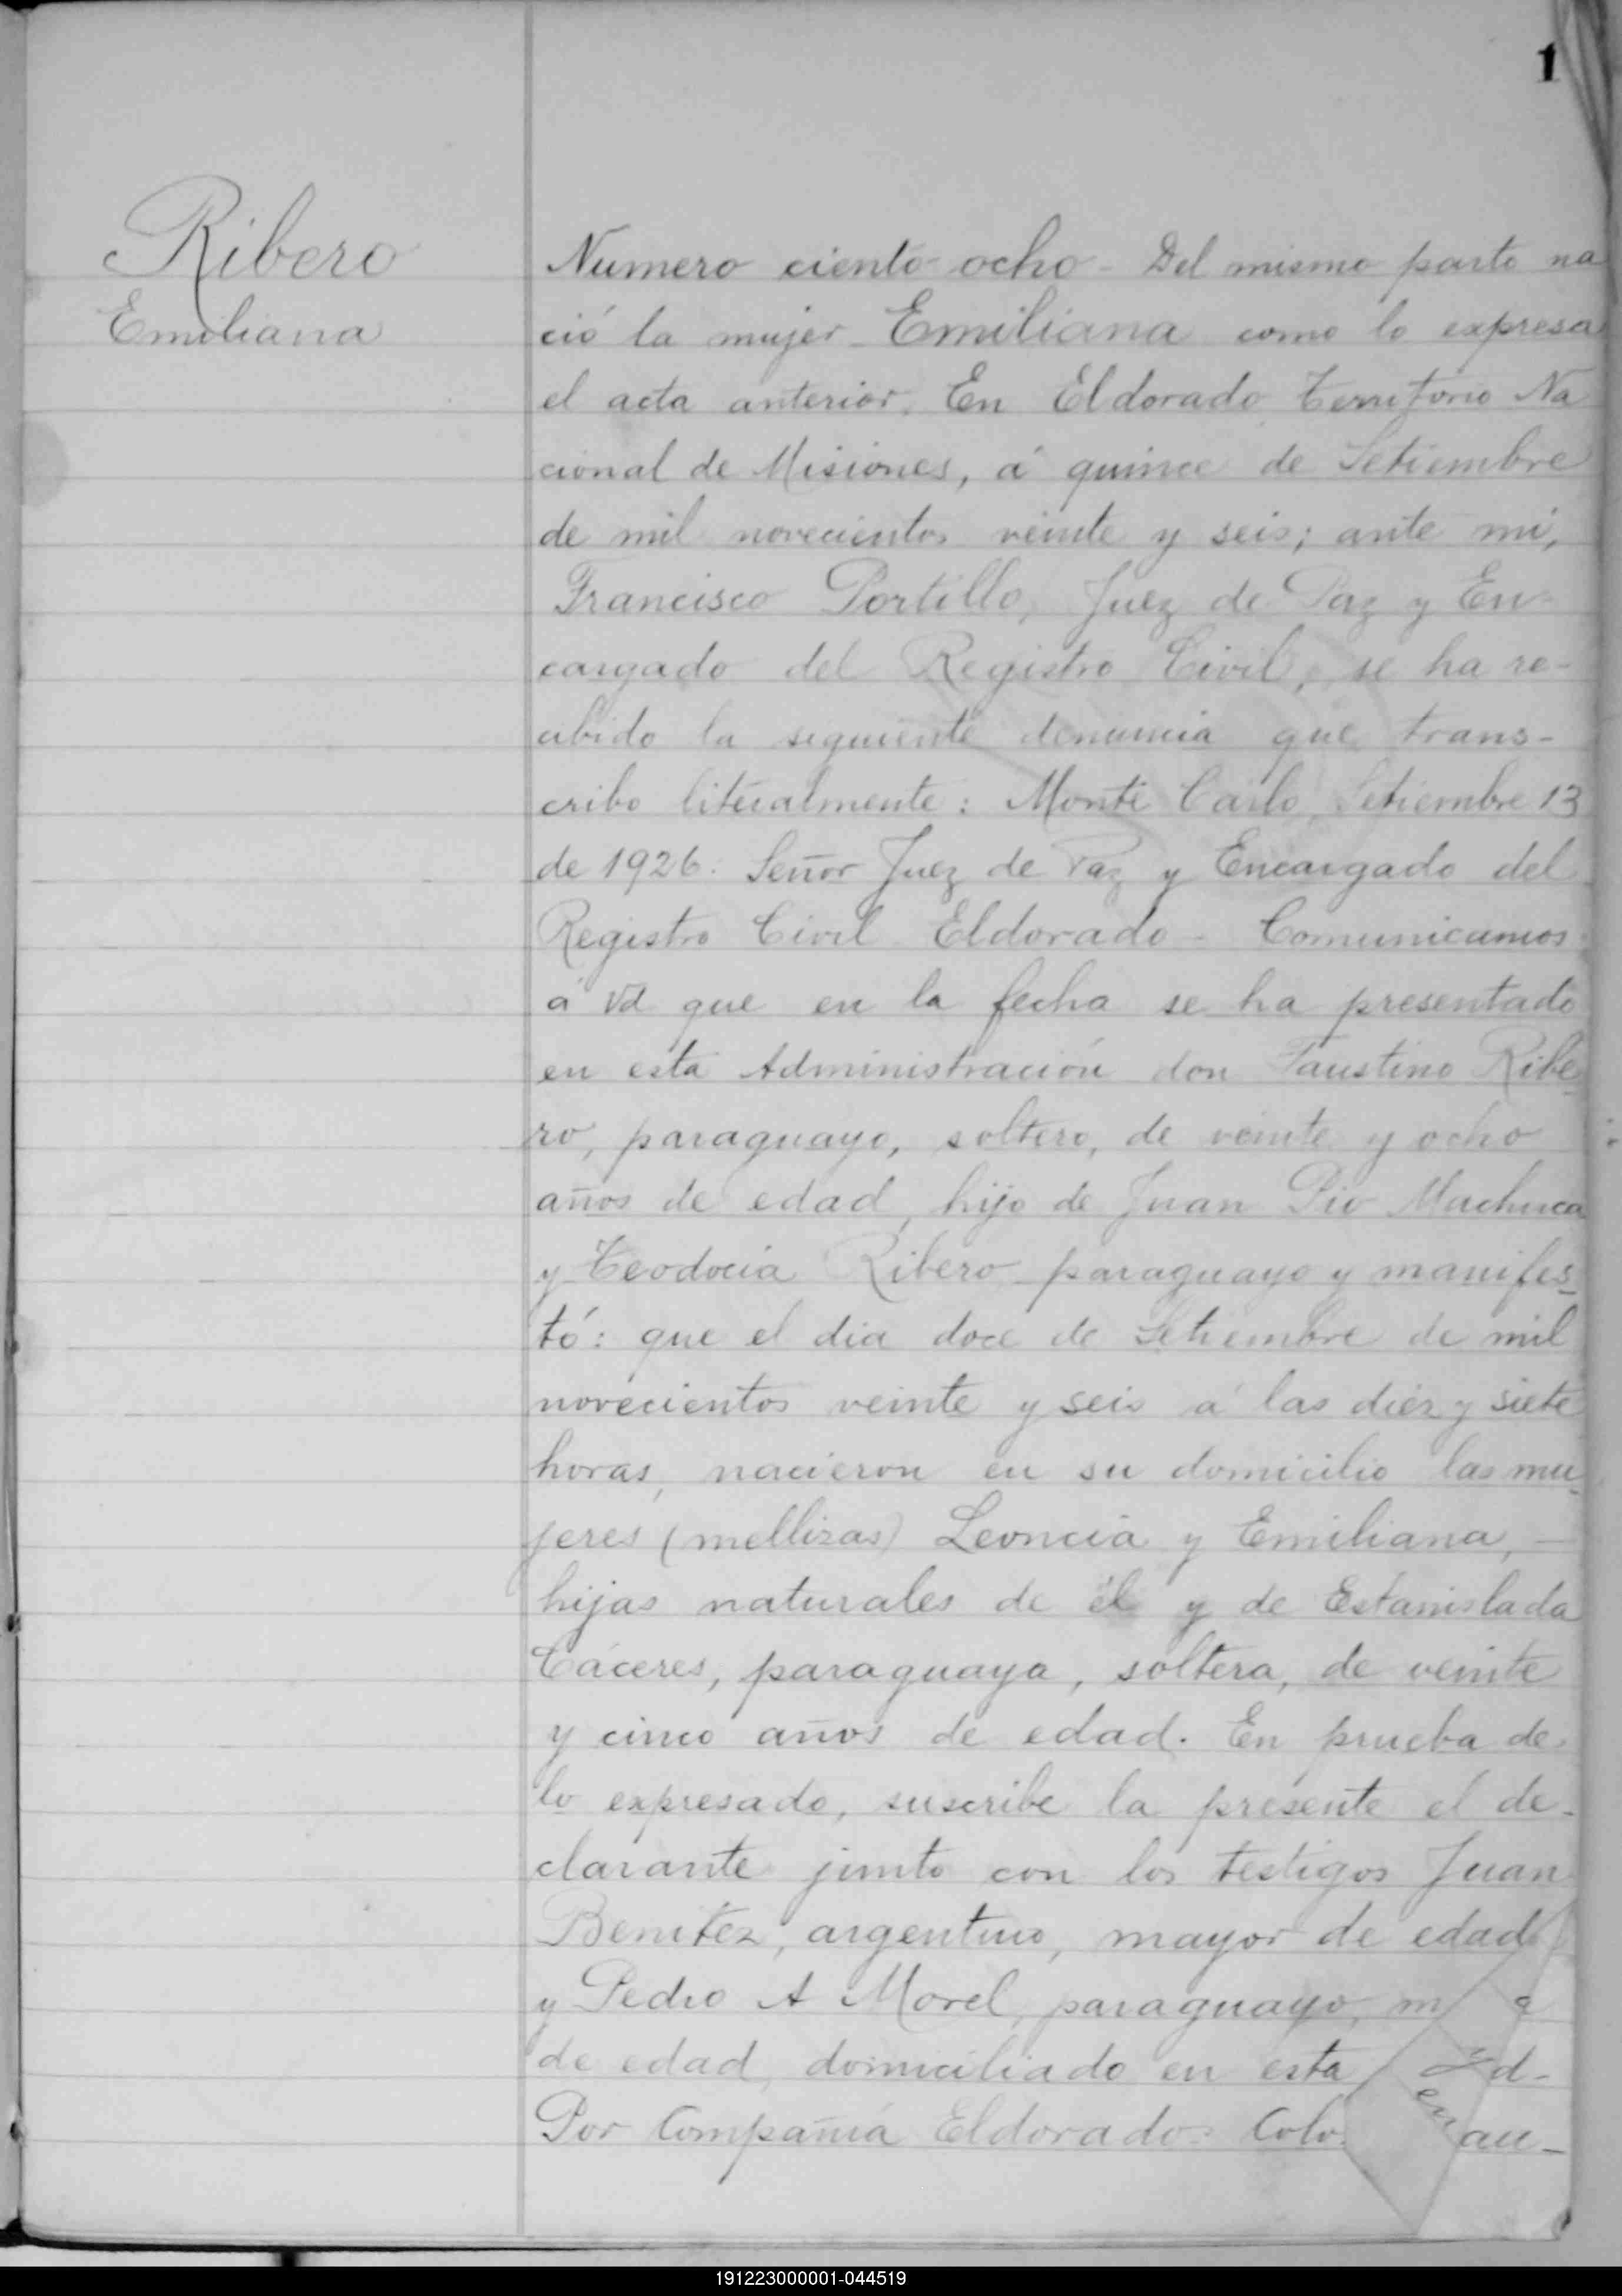 1
Ribero
Emiliana
Numero ciento ocho - Del mismo parto na
ció la mujer Emiliana como lo expresa
el acta anterior. En Eldorado Territorio Na
cional de Misiones, á quince de Setiembre
de mil novecientos veinte y seis; ante mi,
Francisco Portillo, Juez de Paz y En-
cargado del Registro Civil, se ha re-
cibido la siguiente denuncia que trans-
cribo literalmente: Monte Carlo, Setiembre 13
de 1926: Señor Juez de Paz y Encargado del
Registro Civil Eldorado - Comunicamos
á Vd que en la fecha se ha presentado
en esta Administración don Faustino Ribe
ro, paraguayo, soltero, de veinte y ocho
años de edad, hijo de Juan Pio Machuca
y Teodocia Ribero paraguayo y manifes-
tó: que el dia doce de Setiembre de mil
novecientos veinte y seis á las diez y siete
horas, nacieron en su domicilio las mu-
jeres (mellizas) Leoncia y Emiliana, -
hijas naturales de él y de Estanislada
Cáceres, paraguaya, soltera, de veinte
y cinco años de edad. En prueba de
lo expresado, suscribe la presente el de-
clarante junto con los testigos Juan
Benitez, argentino, mayor de edad
y Pedro A Morel, paraguayo, m
de edad, domiciliado en esta
Por Compañia Eldorado: Colo
191223000001-044519